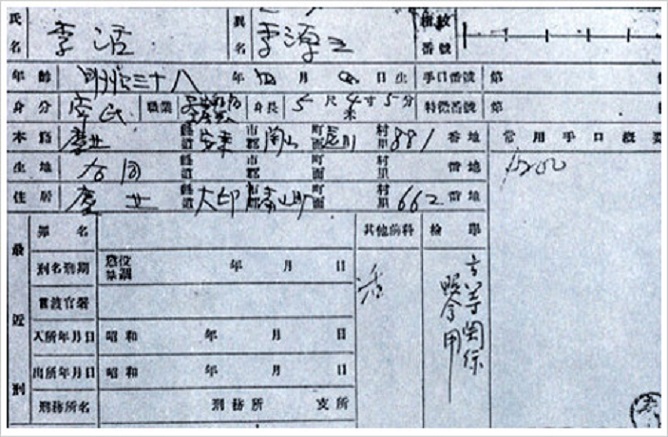 氏名 李活 異名 李源三 指紋番號
年齡 明治三十八年四月四日生 手口番號 第
身分 常民 職業 身長 5尺4寸5分 米 特徵番號 第
本籍 慶北 縣道 安東 市郡 陶山 町面 村里 881番地 常用手口概要
出生地 仝 同 縣道 市郡 町面 村里 番地
住居 慶北 縣道 大邱 市郡 町面 村里 662番地
最近刑
罪名 其他前科 檢擧
刑名刑期 懲役 禁錮 年 月 日
言渡官署
入所年月日 昭和 年 月 日
出所年月日 昭和 年 月 日
刑務所名 刑務所 支所
高等關係
照會用